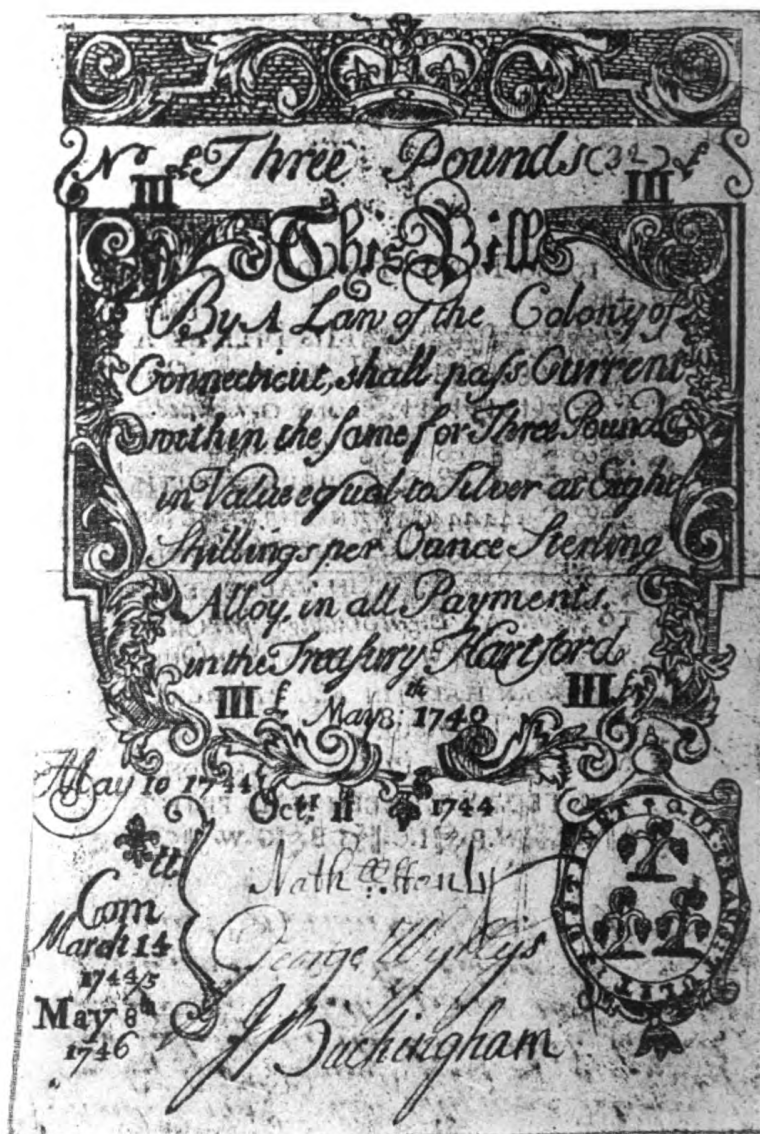 No £ Three Pounds £
III III
This Bill
By A Law of the Colony of
Connecticut, shall pass Current
within the same for Three Pounds
in Value equal to Silver at Eight
Shillings per Ounce Sterling
Alloy, in all Payments.
in the Treasury Hartford
III £ May 8th 1740 III £
May 10 1744
Octr. 11 1744
Com
March 14
1744/5
May 8th
1746
George Wyllys
J Buckingham
SUSTINET QUI TRANSTULIT